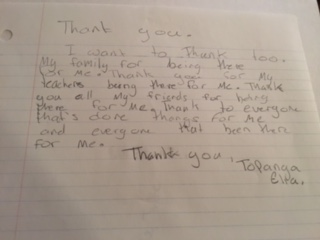 Thank you.
I want to Thank too.
My family for being there
for me. Thank you for My
teachers being there for me. Thank
you all my friends for being
there for me, thank to everyone
that's done things for me
and everyone that been there
for me.
Thank you,
Topanga